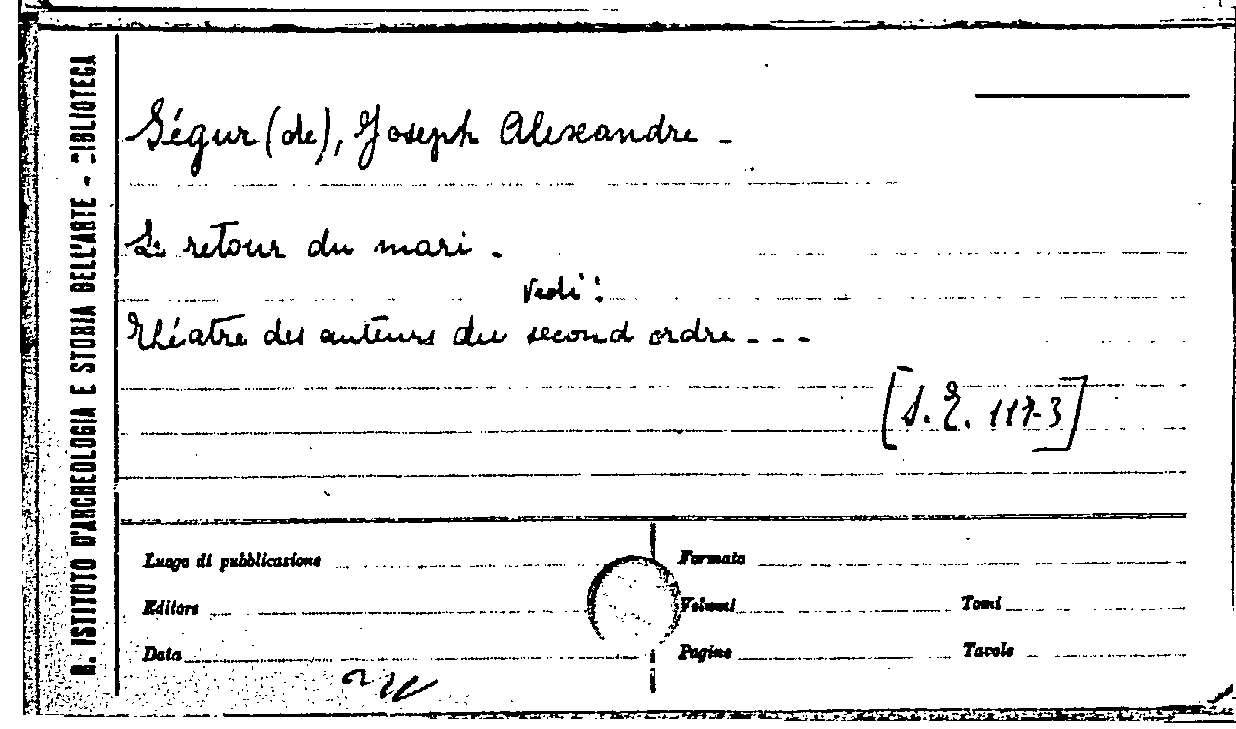 R. ISTITUTO D'ARCHEOLOGIA E STORIA DELL'ARTE - BIBLIOTECA
Ségur (de), Joseph Alexandre -
Le retour du mari.
Vedi:
Théatre des auteurs du second ordre - - -
[S. E. 117-3]
Luogo di pubblicazione
Formato
Editore
Volumi
Tomi
Data
Pagine
Tavole